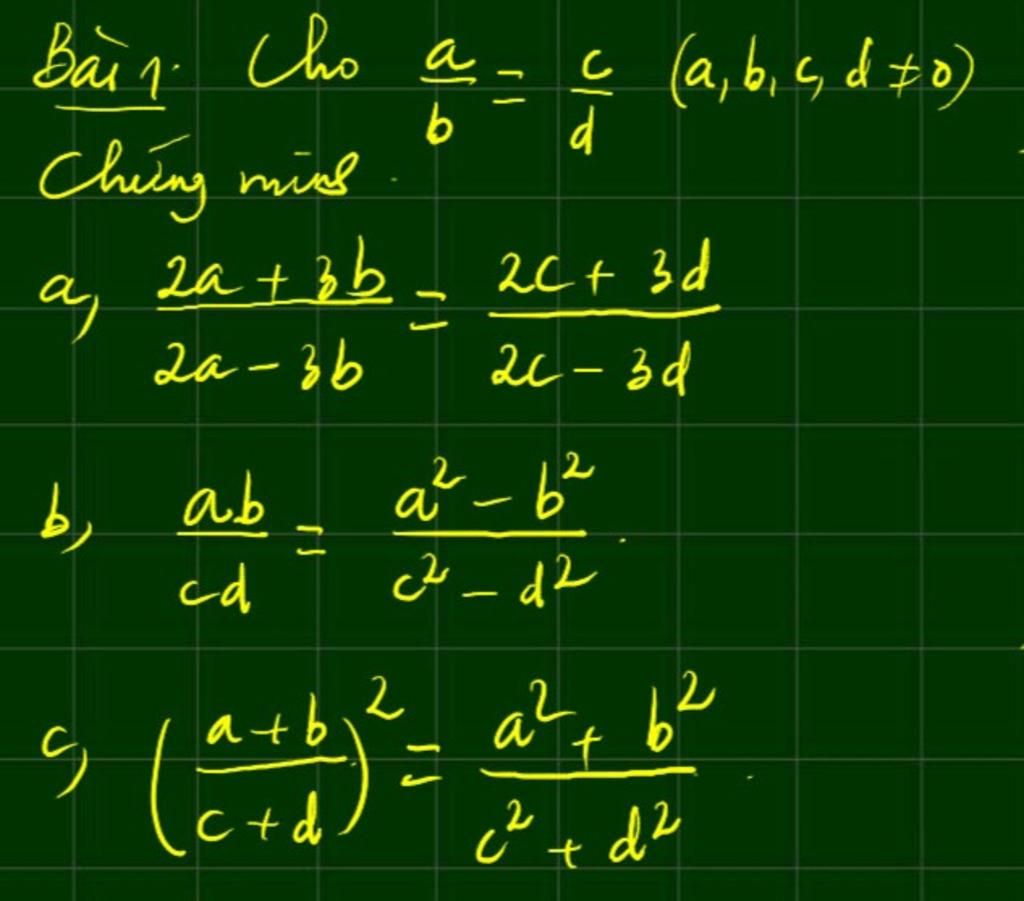 Bài 1. Cho a/b = c/d (a, b, c, d ≠ 0)
Chứng minh.
a, (2a + 3b)/(2a - 3b) = (2c + 3d)/(2c - 3d)
b, ab/cd = (a² - b²)/(c² - d²).
c, ((a + b)/(c + d))² = (a² + b²)/(c² + d²).